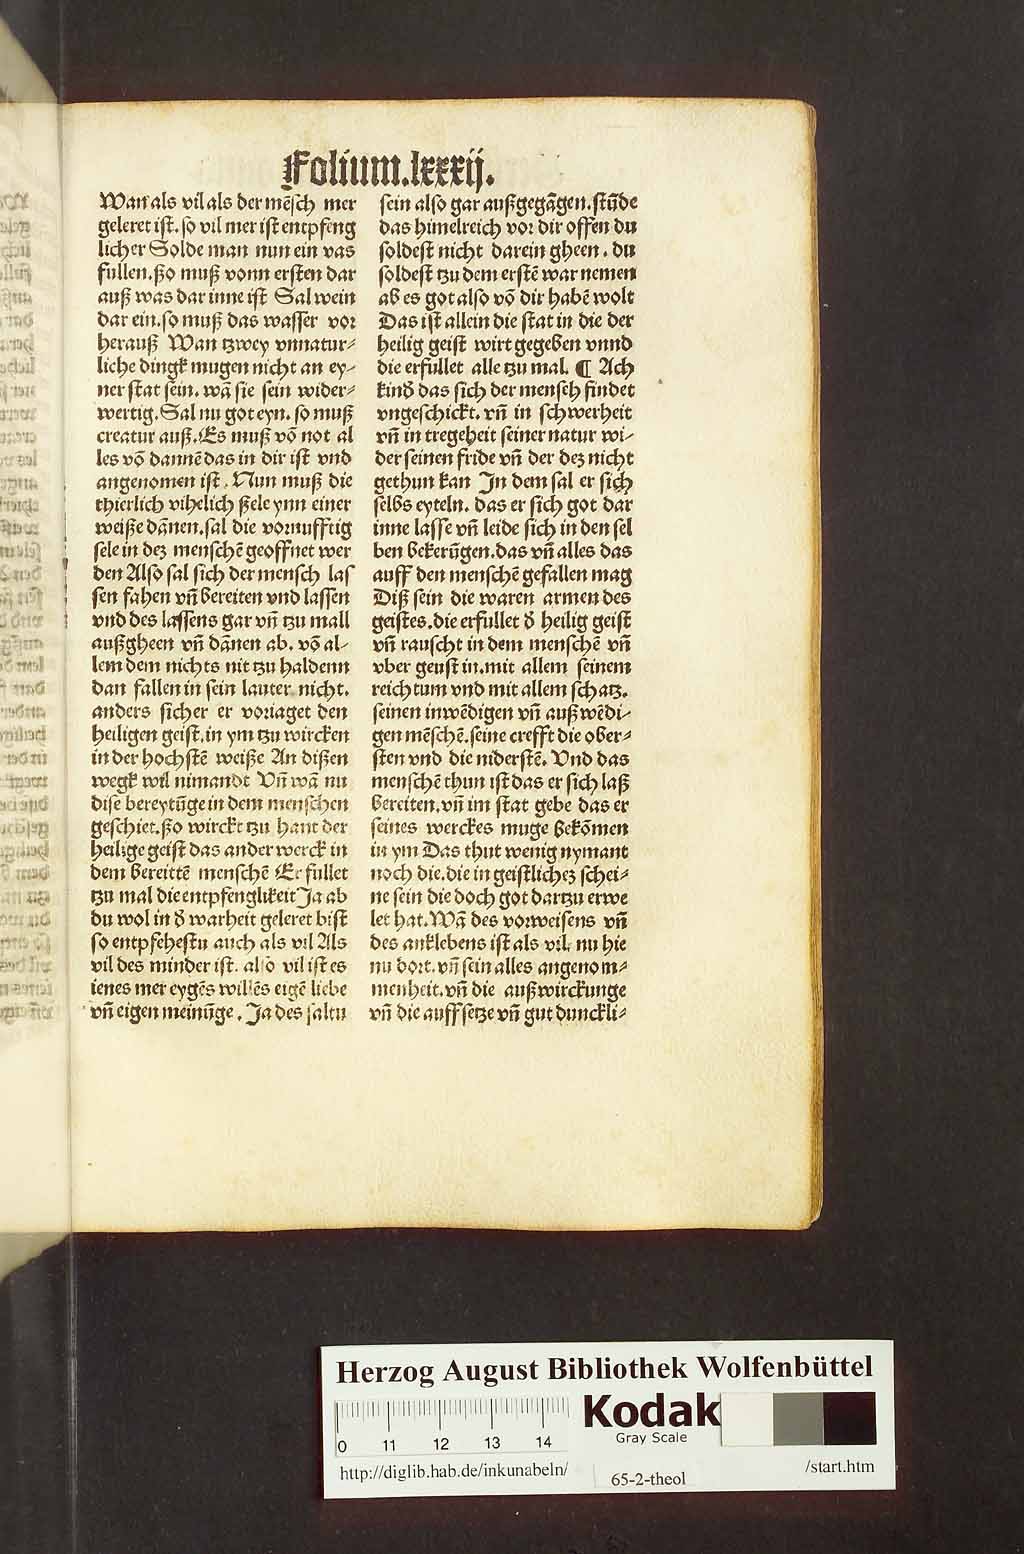 Folium.lxxxij.
Wan als vil als der mẽsch mer
geleret ist. so vil mer ist entpfeng
licher Solde man nun ein vas
fullen. ßo muß vonn ersten dar
auß was dar inne ist Sal wein
dar ein. so muß das wasser vor
herauß Wan tzwey vnnatur-
liche dingk mugen nicht an ey-
ner stat sein. wã sie sein wider-
wertig. Sal nu got eyn. so muß
creatur auß. Es muß võ not al
les võ dannẽ das in dir ist vnd
angenomen ist. Nun muß die
thierlich vihelich ßele ynn einer
weiße dãnen. sal die vornufftig
sele in dez menschẽ geoffnet wer
den Also sal sich der mensch las
sen fahen vñ bereiten vnd lassen
vnd des lassens gar vñ tzu mall
außgheen vñ dãnen ab. võ al-
lem dem nichts nit tzu haldenn
dan fallen in sein lauter nicht.
anders sicher er voriaget den
heiligen geist. in ym tzu wircken
in der hochstẽ weiße An dißen
wegk wil nimandt Vñ wã nu
dise bereytũge in dem menschen
geschiet. ßo wirckt tzu hant der
heilige geist das ander werck in
dem bereittẽ menschẽ Er fullet
tzu mal die entpfenglikeit Ja ab
du wol in ð warheit geleret bist
so entpfehestu auch als vil Als
vil des minder ist. also vil ist es
ienes mer eygẽs willẽs eigẽ liebe
vñ eigen meinũge. Ja des saltu
sein also gar außgegãgen. stũde
das himelreich vor dir offen du
soldest nicht darein gheen. du
soldest tzu dem erstẽ war nemen
ab es got also võ dir habẽ wolt
Das ist allein die stat in die der
heilig geist wirt gegeben vnnd
die erfullet alle tzu mal. ¶ Ach
kind das sich der mensch findet
vngeschickt. vñ in schwerheit
vñ in tregeheit seiner natur wi-
der seinen fride vñ der dez nicht
gethun kan In dem sal er sich
selbs eyteln. das er sich got dar
inne lasse vñ leide sich in den sel
ben bekerũgen. das vñ alles das
auff den menschẽ gefallen mag
Diß sein die waren armen des
geistes. die erfullet ð heilig geist
vñ rauscht in dem menschẽ vñ
vber geust in. mit allem seinem
reichtum vnd mit allem schatz.
seinen inwẽdigen vñ außwẽdi-
gen mẽschẽ. seine crefft die ober-
sten vnd die niderstẽ. Vnd das
menschẽ thun ist das er sich laß
bereiten. vñ im stat gebe das er
seines werckes muge bekõmen
in ym Das thut wenig nymant
noch die. die in geistlichez schei-
ne sein die doch got dartzu erwe
let hat. Wã des vorweisens vñ
des anklebens ist als vil. nu hie
nu dort. vñ sein alles angenom-
menheit. vñ die außwirckunge
vñ die auffsetze vñ gut dunckli-
Herzog August Bibliothek Wolfenbüttel
0 11 12 13 14
Kodak
Gray Scale
http://diglib.hab.de/inkunabeln/
65-2-theol
/start.htm